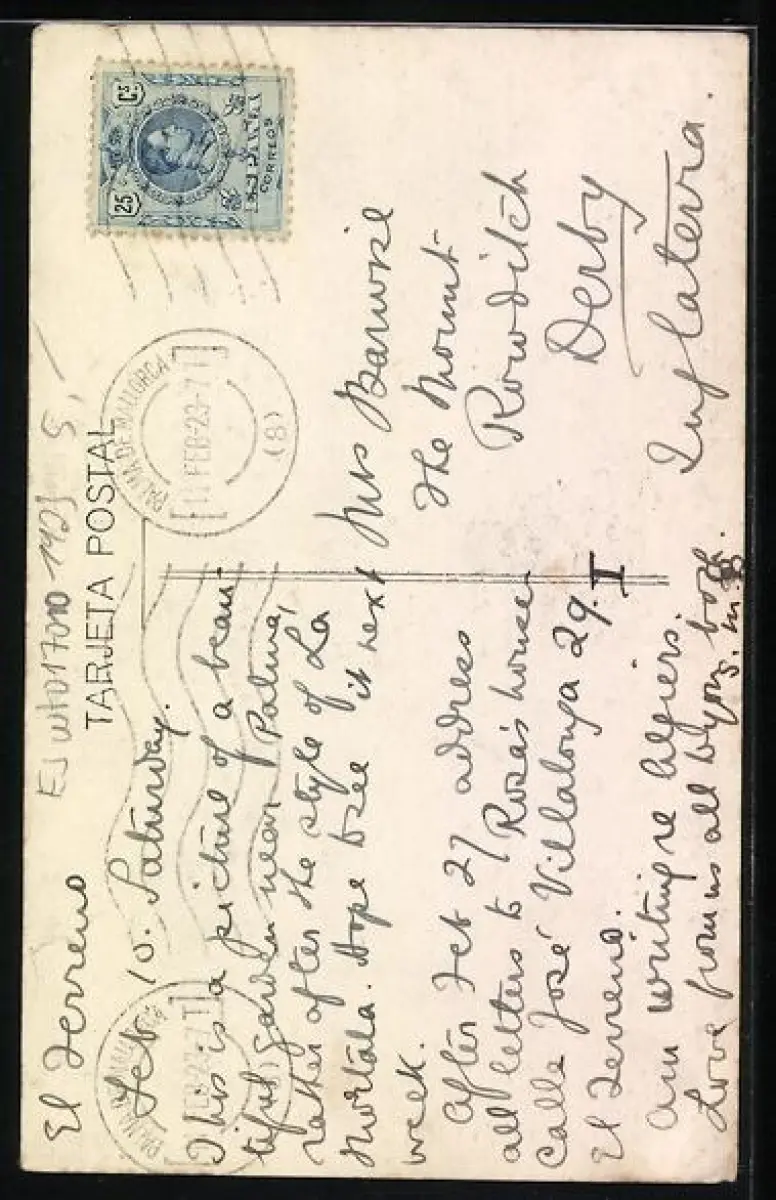 TARJETA POSTAL
25 Cs
ESPAÑA
CORREOS
PALMA DE MALLORCA
11 FEB 23-7T
(8)
El Terreno
Feb 10. Saturday.
This is a picture of a beau-
tiful garden near Palma,
rather after the style of La
Mortola. Hope to see it next
week.
After Feb 27 address
all letters to Rosa's house
Calle José Villalonga 29.
El Terreno.
Am writing re Algiers.
Love from us all to you both.
Mrs Barwise
The Mount
Rowditch
Derby
Inglaterra.